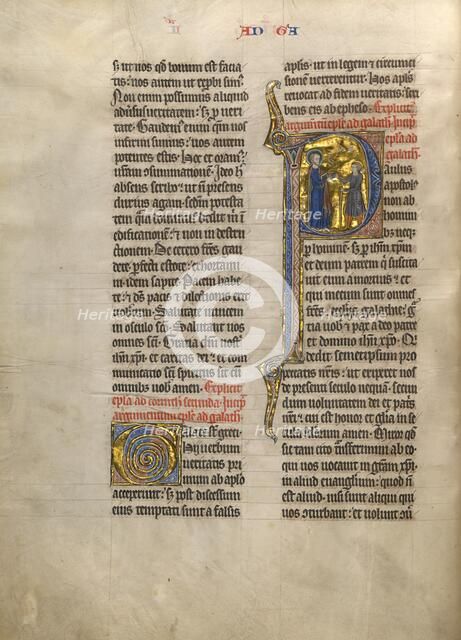 II AD GA
s; ut uos qđ bonum est facia
tis: nos autem ut reprobi sim⁹.
Non enim possumus aliquid
aduersus ueritatem: s; p ueri
tate. Gaudem⁹ enim qm̄ nos
infirmi sumus: uos autem
potentes estis. Hoc et oram⁹:
uram̄ ɔsummationem. Ideo h̄
absens scribo: ut n̄ presens
durius agam: scđm potesta
tem quā dominus dedit m̄ in
edificationē: ⁊ non in destru
ctionem. De cetero fr̄es gau
dete. pfecti estote: exhortami
ni. idem sapite. Pacem habe
te: ⁊ deus pacis ⁊ dilectionis erit
uobiscum. Salutate inuicem
in osculo sc̄o. Salutant uos
omnes sc̄i. Gratia dn̄i nost̄
ihu xp̄i. et caritas dei: et com
municatio sc̄i spiritus sit cū
omnibus uobis amen. Explicit
epl̄a ad corinth̄ secunda. Incip̄
argumentum epl̄e ad galath̄.
Galathe sunt greci.
Hij uerbum
ueritatis pri
mum ab apl̄o
acceperunt: s; post discessum
eius temptati sunt a falsis
apl̄is. ut in legem et circumci
sionem uerterentur. Hos apl̄s
reuocat ad fidem ueritatis: scri
bens eis ab epheso. Explicit
argumtū epl̄e ad galath̄. Incip̄
epl̄a ad
galath̄.
Paulus
apostol⁹
non ab
homini
bus neq;
p hominē: s; p ih̄m xp̄m
et deum patrem qui susci
tauit eum a mortuis: et
qui mecum sunt omnes
fr̄es. eccl̄ijs galathie. Gra
tia uobis ⁊ pax a deo patre
et domino ih̄u xp̄o. Qui
dedit semetipsum pro
peccatis nr̄is: ut eriperet nos
de presenti seculo nequā. secun
dum uoluntatem dei et patris
nr̄i. cui est honor et gloria in sc̄la
seculorum amen. Miror qđ
sic tam cito transferimini ab eo
qui uos uocauit in gr̄am xp̄i.
in aliud euangelium: quod n̄
est aliud. nisi sunt aliqui qui
uos ɔturbant: et uolunt ɔuer
Heritage Heritage
Heritage Heritage